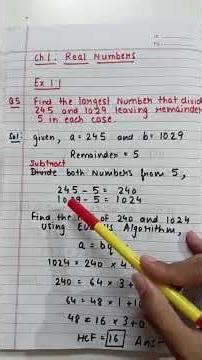 Ch 1. Real Numbers
Ex 1.1
Q5 Find the longest Number that divid
245 and 1029 leaving remainder
5 in each case.
Sol: given, a = 245 and b = 1029
Remainder = 5
Subtract
Divide both Numbers from 5,
245 - 5 = 240
1029 - 5 = 1024
Find the of 240 and 1024
using Algorithm,
a = bq
1024 = 240 × 4
240 = 64 × 3 +
64 = 48 × 1 + 1
48 = 16 × 3 + 0
HCF = 16 Ans